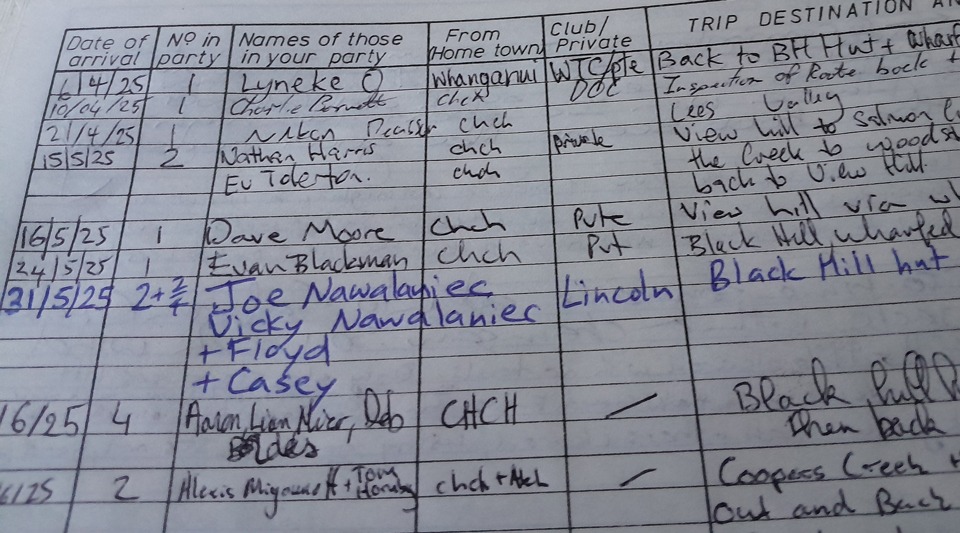 Date of arrival No in party Names of those in your party From Home town Club/ Private TRIP DESTINATION
6/4/25 1 Lyneke O Whanganui WTC/pte Back to BH Hut + 
10/04/25 1 Charlie Chch DOC Inspection of Route back +
Lees Valley
21/4/25 1 chch View hill to Salmon
15/5/25 2 Nathan Harris chch private the Creek to
Ev Tolerton. chch back to View Hill
16/5/25 1 Dave Moore chch Pvte View hill via
24/5/25 1 Evan Blackman chch Pvt Black Hill, wharfed
31/5/25 2+ Joe Nawalaniec Lincoln Black Hill hut
Vicky Nawalaniec
+ Floyd
+ Casey
16/25 4 Aaron, Liam Deb CHCH — Black hill
then back
6/25 2 Alexis + Tom chch + Coopers Creek
Out and Back